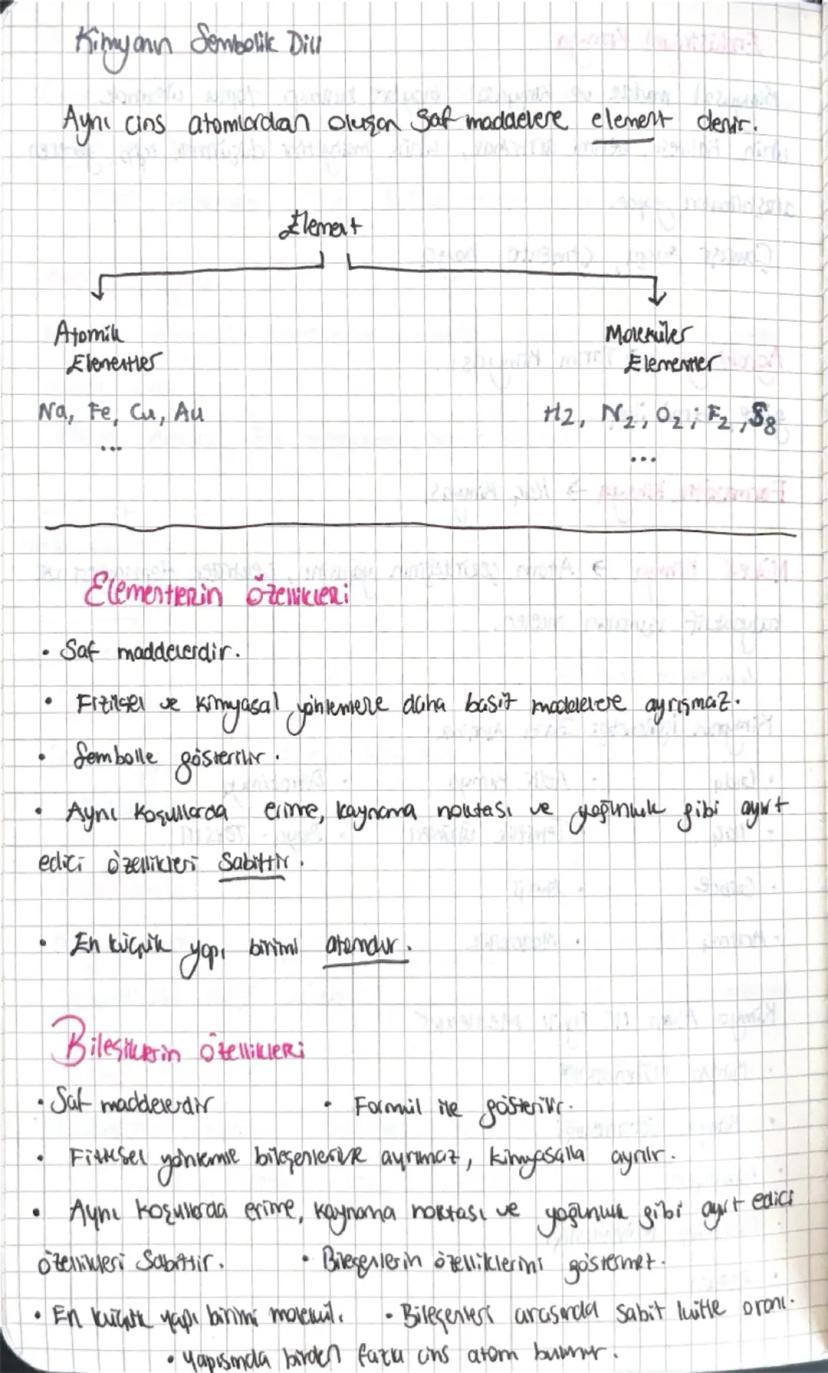 Kimyanın Sembolik Dili
Aynı cins atomlardan oluşan saf maddelere element denir.
Element
Atomik
Elementler
Moleküler
Elementler
Na, Fe, Cu, Au
...
H2, N2, O2, F2, S8
...
Elementlerin Özellikleri
• Saf maddelerdir.
• Fiziksel ve kimyasal yöntemlere daha basit maddelere ayrışmaz.
• Sembolle gösterilir.
• Aynı koşullarda erime, kaynama noktası ve yoğunluk gibi ayırt
edici özellikleri sabittir.
• En küçük yapı birimi atomdur.
Bileşiklerin özellikleri
• Saf maddelerdir • Formül ile gösterilir.
• Fiziksel yöntemle bileşenlerine ayrılmaz, kimyasalla ayrılır.
• Aynı koşullarda erime, kaynama noktası ve yoğunluk gibi ayırt edici
özellikleri sabittir. • Bileşenlerin özelliklerini göstermez.
• En küçük yapı birimi molekül. • Bileşenleri arasında sabit kütle oranı.
• Yapısında birden fazla cins atom bulunur.